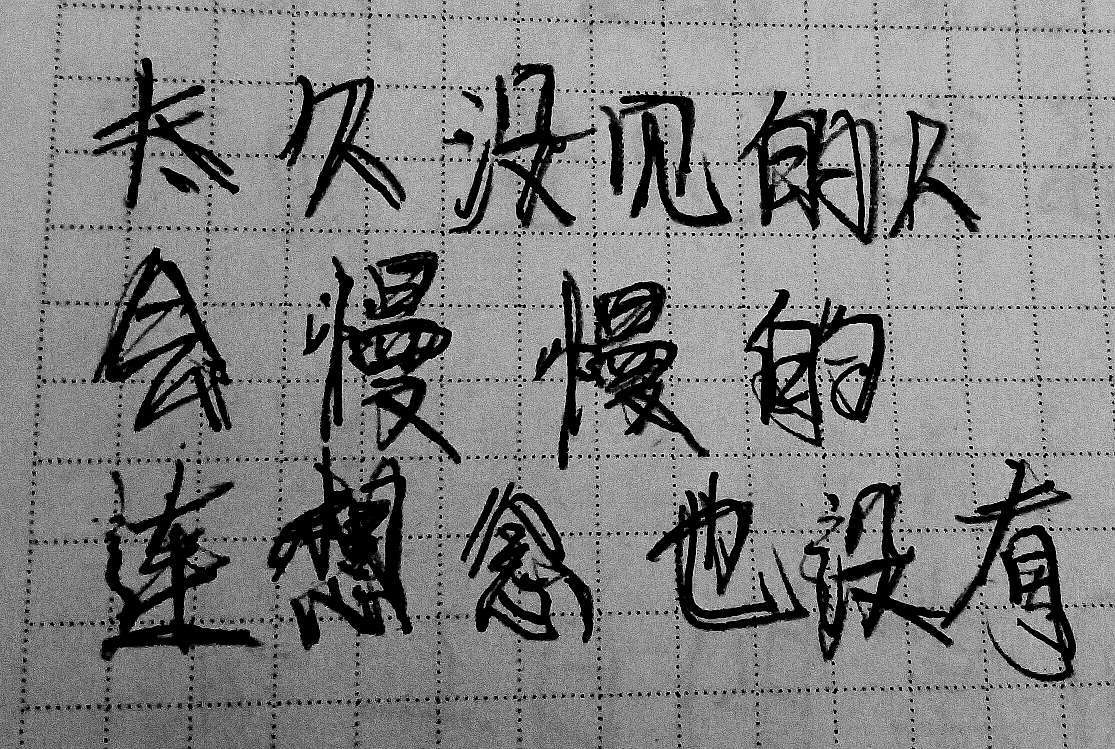 太久没见的人
会慢慢的
连想念也没有